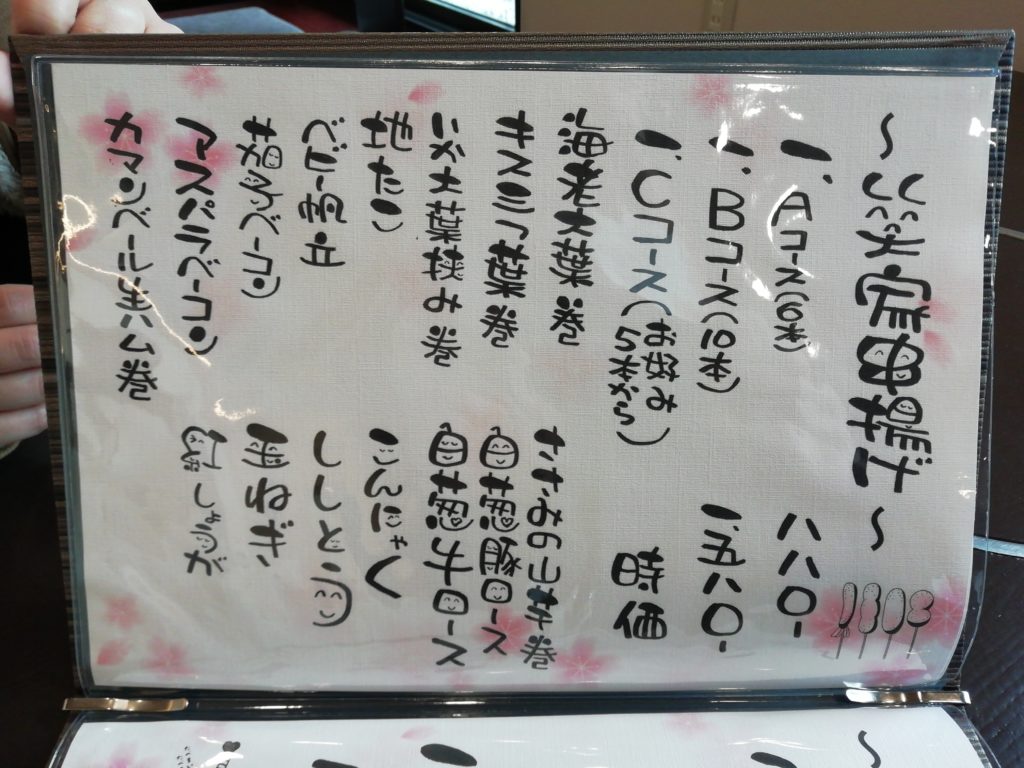 〜笑家串揚げ〜
一、Aコース(6本) 八八〇-
一、Bコース(10本) 一、五八〇-
一、Cコース(お好み5本から) 時価
海老大葉巻
キスミツ葉巻
いか大葉挟み巻
地たこ
ベビー帆立
アスパラベーコン
カマンベール生ハム巻
ささみのしそ巻
白葱豚ロース
白葱牛ロース
こんにゃく
ししとう
玉ねぎ
紅しょうが